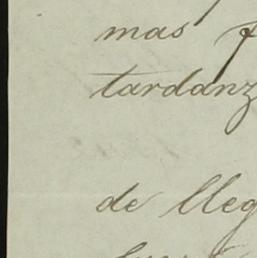 mas
tardanz
de lleg